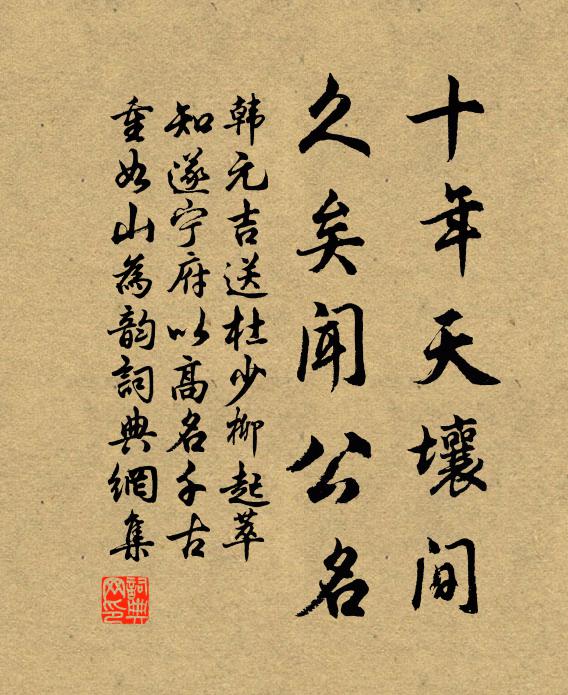 十年天壤间
久矣闻公名
韩元吉送杜少柳起萃
知遂宁府以高名千古
重如山为韵词典网集
词典网印